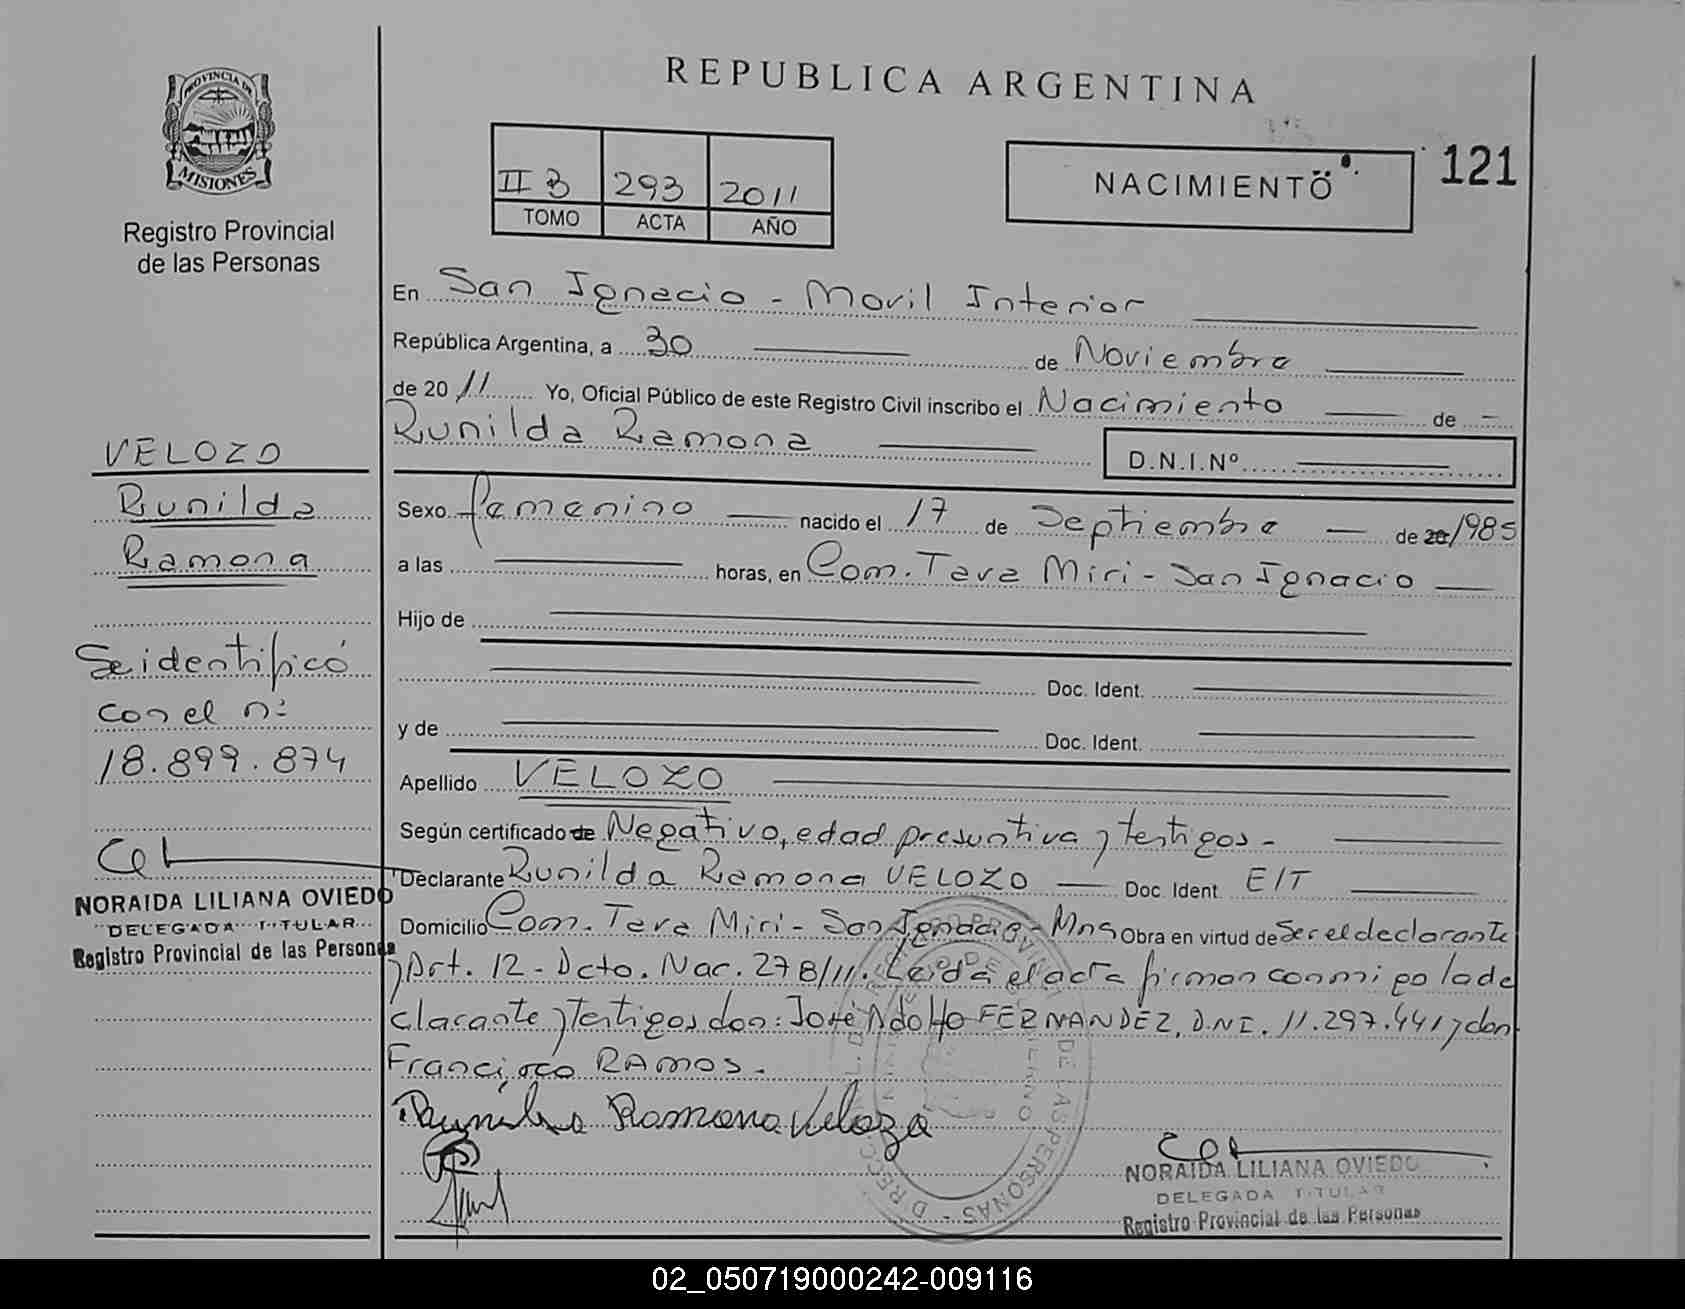 REPUBLICA ARGENTINA
PROVINCIA DE
MISIONES
Registro Provincial
de las Personas
II B 293 2011
TOMO ACTA AÑO
NACIMIENTO
121
En San Ignacio - Movil Interior
República Argentina, a 30 de Noviembre
de 2011 Yo, Oficial Público de este Registro Civil inscribo el Nacimiento de
Runilda Ramona
D.N.I.Nº
Sexo femenino nacido el 17 de Septiembre de 20 1985
a las horas, en Com. Tava Miri - San Ignacio
Hijo de
Doc. Ident.
y de
Doc. Ident.
Apellido VELOZO
Según certificado de Negativo, edad presuntiva y testigos -
Declarante Runilda Ramona VELOZO Doc. Ident. EIT
Domicilio Com. Tava Miri - San Ignacio - Mns Obra en virtud de Ser el declarante
y Art. 12 - Dcto. Nac. 278/11. Leída el acta firman conmigo la de
clarante y testigos don: José Adolfo FERNANDEZ, DNI. 11.297.441 y don
Francisco RAMOS -
Runilda Ramona Veloza
NORAIDA LILIANA OVIEDO
DELEGADA TITULAR
Registro Provincial de las Personas
VELOZO
Runilda
Ramona
Se identificó
con el nº
18.899.874
NORAIDA LILIANA OVIEDO
DELEGADA TITULAR
Registro Provincial de las Personas
02_050719000242-009116